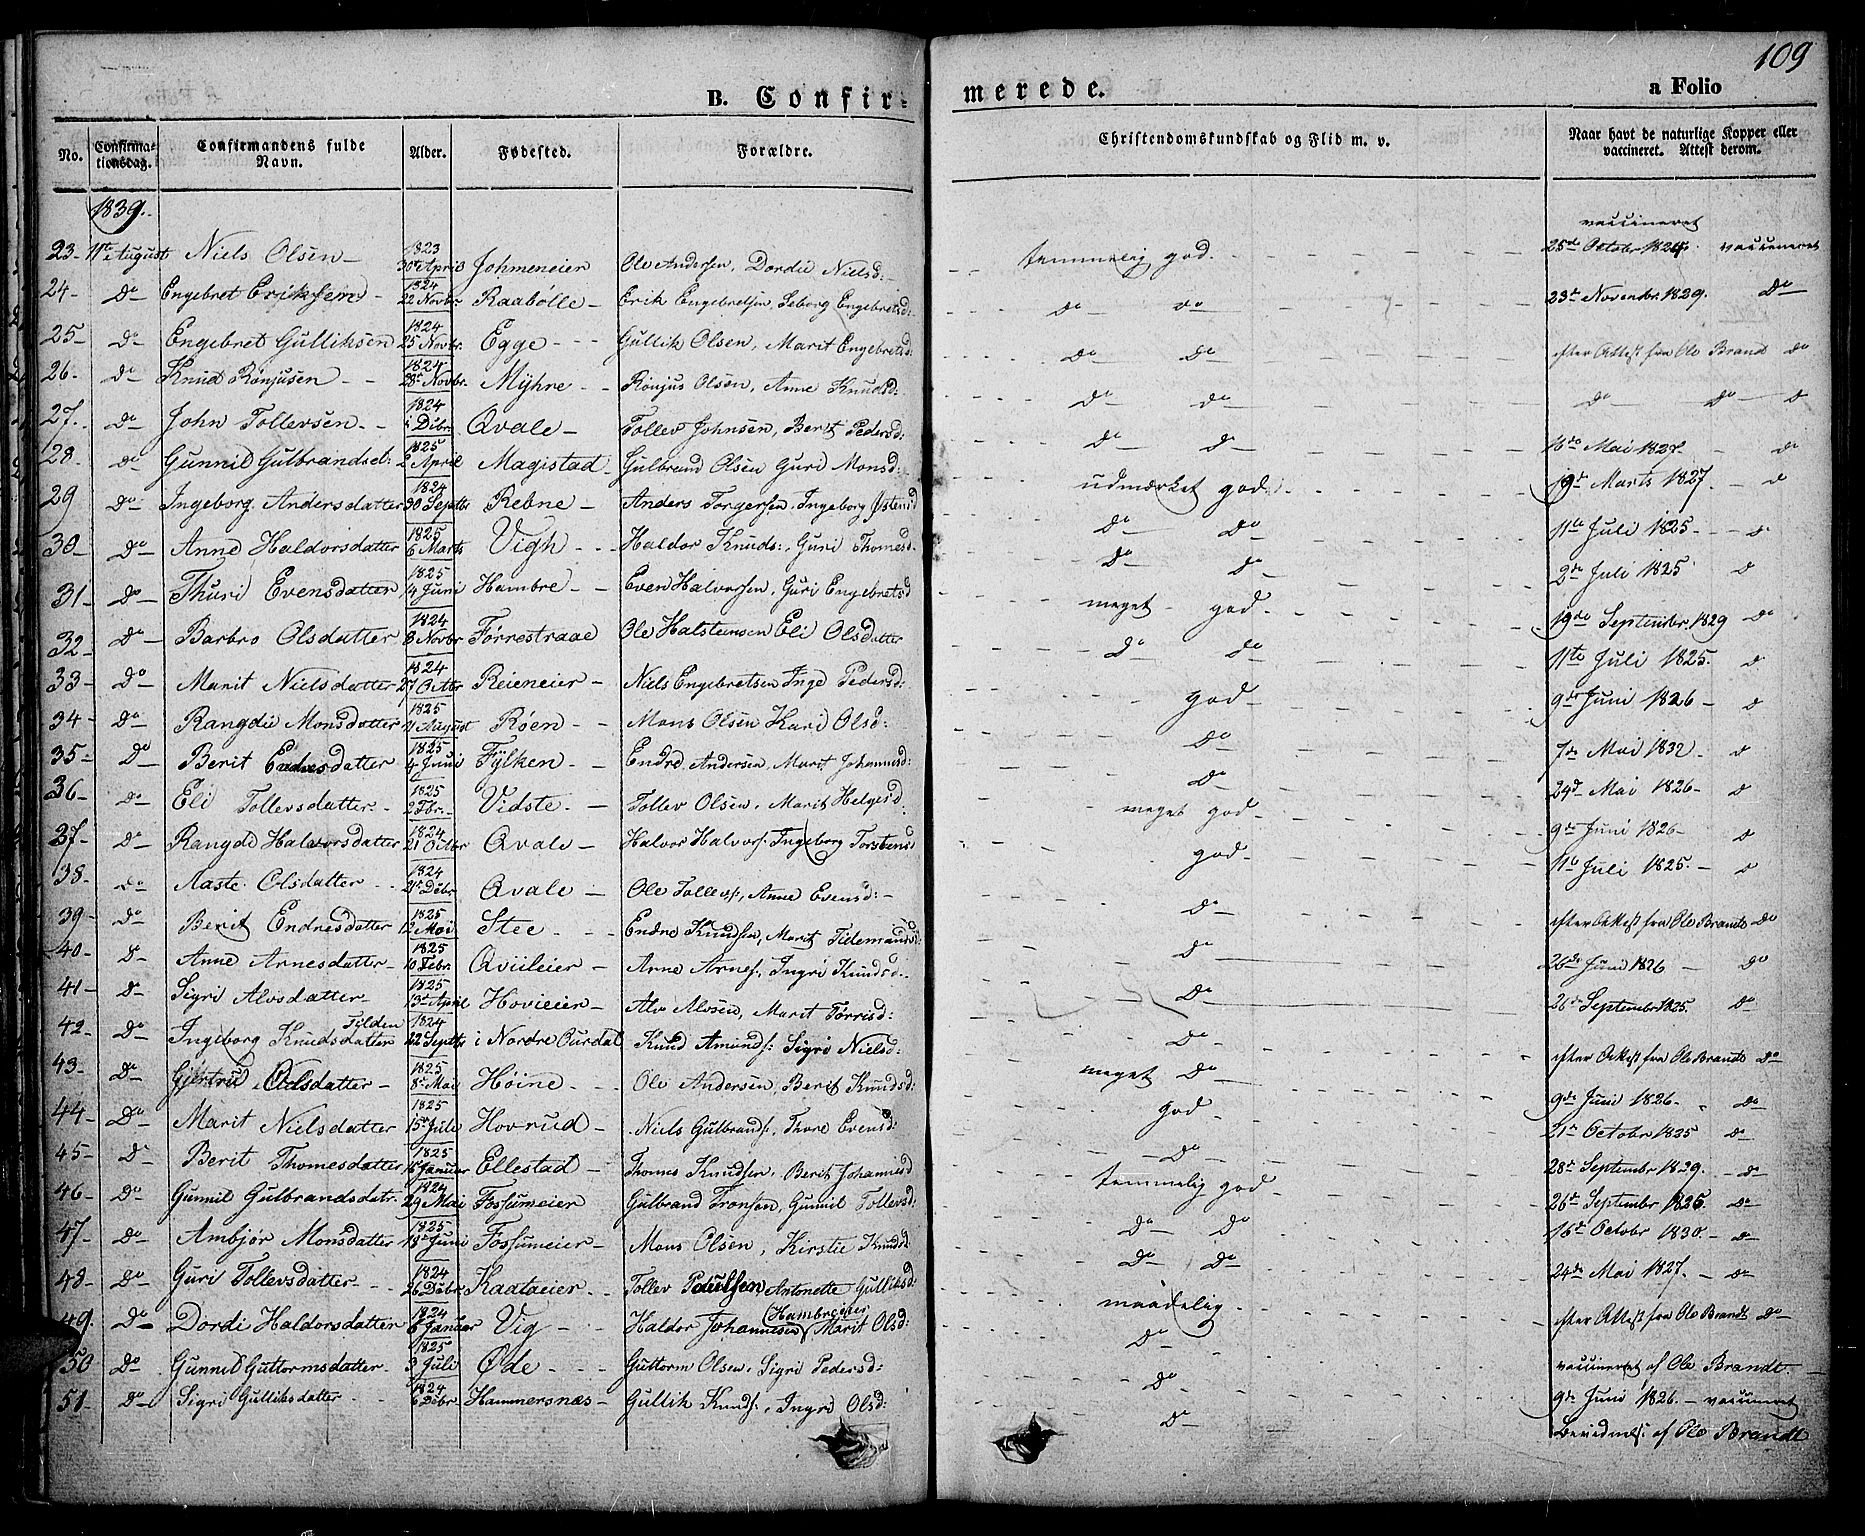 109
B. Confirmerede. a Folio
No. Confirmationsdag. Confirmandens fulde Navn. Alder. Fødested. Forældre. Christendomskundskab og Flid m. v. Naar havt de naturlige Kopper eller vaccineret. Attest derom.
1839.
23 11te August Niels Olsen 1823 30 April Johmeneier Ole Andersen, Dordie Nielsd: temmelig god. vaccineret 25de Octobr 1824. vaccineret
24 Do Engebret Eriksen 1824 22 Novbr Raabølle Erik Engebretsen, Seborg Engebretsd: Do Do 23de Novembr. 1829. Do
25 Do Engebret Gulliksen 1824 25 Novbr. Egge Gullik Olsen, Marit Engebretsd: Do Do efter Attest fra Ole Brandt Do
26 Do Knud Ronjusen 1824 28 Novbr. Myhre Ronjus Olsen, Anne Knudsd: Do Do Do Do
27. Do John Tollevsen 1824 Dcbr. Qvale Tollev Johnsen, Berit Pedersd: Do Do 16de Mai 1827. D
28 Do Gunnil Gulbrandsd: 1825 2 April Magistad Gulbrand Olsen Guri Monsd: udmærket god 19de Marts 1827. D
29 Do Ingeborg Andersdatter 1824 30 Septbr Rebne Anders Torgersen, Ingeborg Østensd Do Do 11te Juli 1825 D
30 Do Anne Haldorsdatter 1825 6 Marts Vigh Haldor Knuds:, Guri Thomesd: Do Do 2de Juli 1825 D
31 Do Thuri Evensdatter 1825 14 Juni Hambre Even Halvorsen, Guri Engebretsd meget god 19de September 1829 Do
32 Do Barbro Olsdatter 1824 8 Novbr Førrestraae Ole Halsteensen Eli Olsdatter Do Do 11te Juli 1825. D
33 Do Marit Nielsdatter 1824 27 Octbr Reieneier Niels Engebretsen Inge Pedersd: god 9de Juni 1826 D
34 Do Rangdie Monsdatter 1825 21 August Røen Mons Olsen Kari Olsd: Do 7de Mai 1832 D
35 Do Berit Endresdatter 1825 4 Juni Fylken Endre Andersen, Marit Johannisd: Do 24de Mai 1826 D
36 Do Eli Tollevsdatter 1825 2 Febr. Vidste Tollev Olsen, Marit Helgesd meget god 9de Juni 1826 D
37 Do Rangdi Halvorsdatter 1824 21 Octbr Qvale Halvor Halvors: Ingeborg Torstensd god 11te Juli 1825. D
38 Do Aaste Olsdatter 1824 21 Dcbr. Qvale Ole Tollevs:, Anne Evensd: Do efter Attest fra Ole Brandt Do
39 Do Berit Endresdatter 1825 12 Mai Stee Endre Knudsen, Marit Tidemandsd: Do 26de Juni 1826 Do
40 D Anne Arnesdatter 1825 10 Febr. Qviileier Arne Arnes:, Ingri Knudsd: Do 26de Septembr 1825. Do
41 D Sigri Alvsdatter 1825 13 April Hovieier Alv Alvsen, Marit Torrisd: Do efter Attest fra Ole Brandt Do
42 Do Ingeborg Knudsdatter Fylden 1824 22 Septbr i Nordre Ourdal Knud Amunds: Sigri Nielsd: meget Do 9de Juni 1826. Do
43 Do Gjertrud Olsdatter 1825 8de Mai Høine Ole Andersen, Berit Knudsd: god 21de Octobr 1825 Do
44 Do Marit Nielsdatter 1825 15 Juli Hovrud Niels Gulbrands:, Thore Evensd: Do 28de Septembr 1829. Do
45 D Berit Thomesdatter 1825 15 Januar Ellestad Thomes Knudsen, Berit Johannisd temmelig god 26de Septembr 1825. Do
46 Do Gunnil Gulbrandsdatr. 1824 29 Mai Fossumeier Gulbrand Tronsen, Gunnil Tollevsd: Do Do 16de Octobr 1830. Do
47 Do Ambjør Monsdatter 1825 18 Juni Fossumeier Mons Olsen, Kirstie Knudsd Do Do 24de Mai 1827. Do
48 Do Guri Tollevsdatter 1824 26 Dcbr. Kaataeier Tollev Paulsen Antonette Gulliksd: maadelig. efter Attest fra Ole Brandt Do
49 Do Dordi Haldorsdatter 1824 6 Januar Vig Haldor Johannesen (Hambreeier) Marit Olsd: Do vaccineret af Ole Brandt.
50 Do Gunnil Guttormsdatter 1825 3 Juli Øde Guttorm Olsen, Sigri Pedersd: Do 9de Juni 1826. vaccineret
51 Do Sigri Gulliksdatter 1824 6 Dcbr. Hammersnæs Gullik Knuds:, Ingri Olsd: Do af Ole Brandt